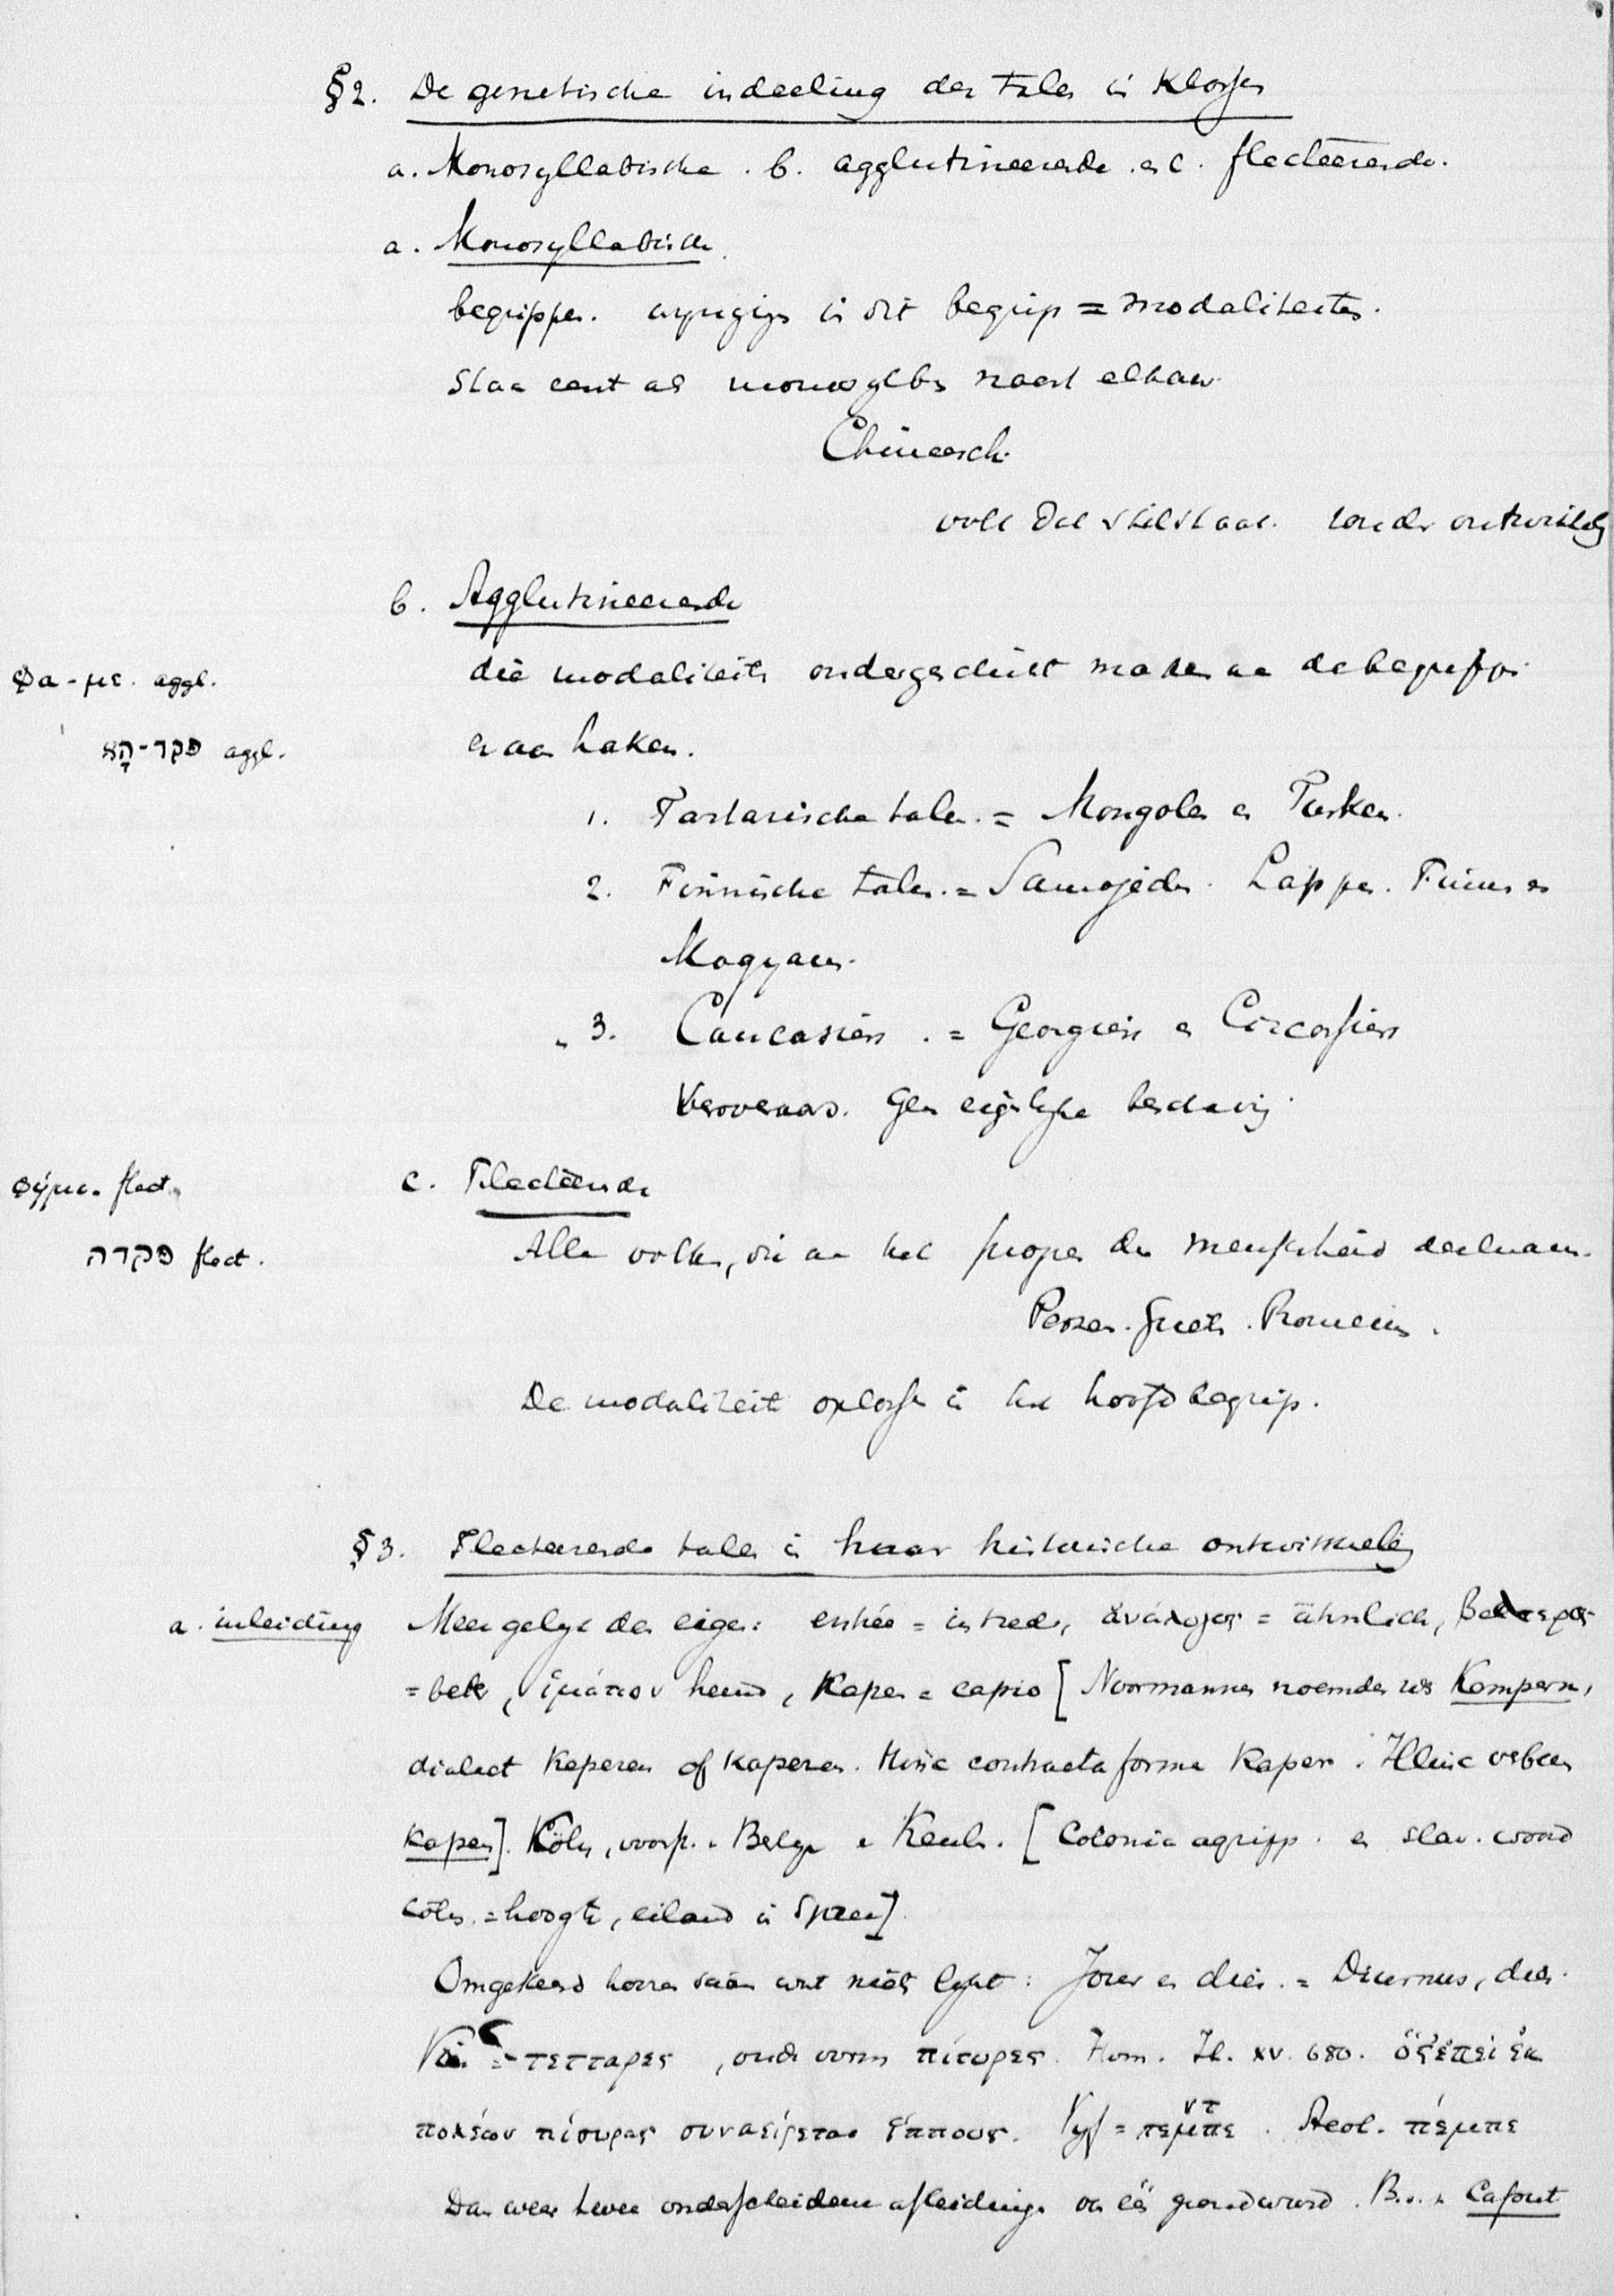 §2. De genetische indeeling der talen in Klassen
a. Monosyllabische . b. agglutineerende . en c. flecteerende.
a. Monosyllabische.
begrippen. wijzigingen in dit begrip = modaliteiten.
Staan eent als monosylben naast elkaar.
Chineesch.
volk dat stilstaat. zonder ontwikkeling
b. Agglutineerende
φα-με. aggl.
die modaliteiten ondergeschikt maken aan de begrippen
פקד-הָ aggl.
er aan haken.
1. Tartarische talen. = Mongolen en Turken.
2. Finnische talen. = Samojeden. Lappen. Finnen en
Magyaren.
3. Caucasiers . = Georgiers en Circassiers
Veroveraars. Geen eigenlijke beschaving.
φήμι. flect.
c. Flecteerende
פקדה flect.
Alle volken, die aan het progres der menschheid deelnamen.
Perzen. Grieken. Romeinen.
De modaliteit oplossen in het hoofdbegrip.
§3. Flecteerende talen in haar historische ontwikkeling
a. inleiding
Meer gelijk dan eigen: entrée = intrede, ἀνάλογος = ähnlich, βελτερος
= beter, ἱμάτιον hemd, Kapen = capio [Noormannen noemden ons Kempern,
dialect Keperen of kaperen. Hinc contracta forma Kaper. Illinc verbum
kapen]. Köln, voorst. v. Berlijn en Keulen. [Colonia agripp. en slav. woord
Cöln. = hoogte, eiland in Spree].
Omgekeerd hooren saam wat niet lijkt: Jour en dies. = Diurnus, dies.
Vier = τετταρες, oude vorm πίσυρες. Hom. Il. XV. 680. ὅς τ' ἐπεὶ ἐκ
πολέων πίσυρας συναείρεται ἵππους. Vijf = πεμπε ντ. Aeol. πέμπε
Dan weer twee onderscheidene afleidingen van één grondwoord. B.v. Capout